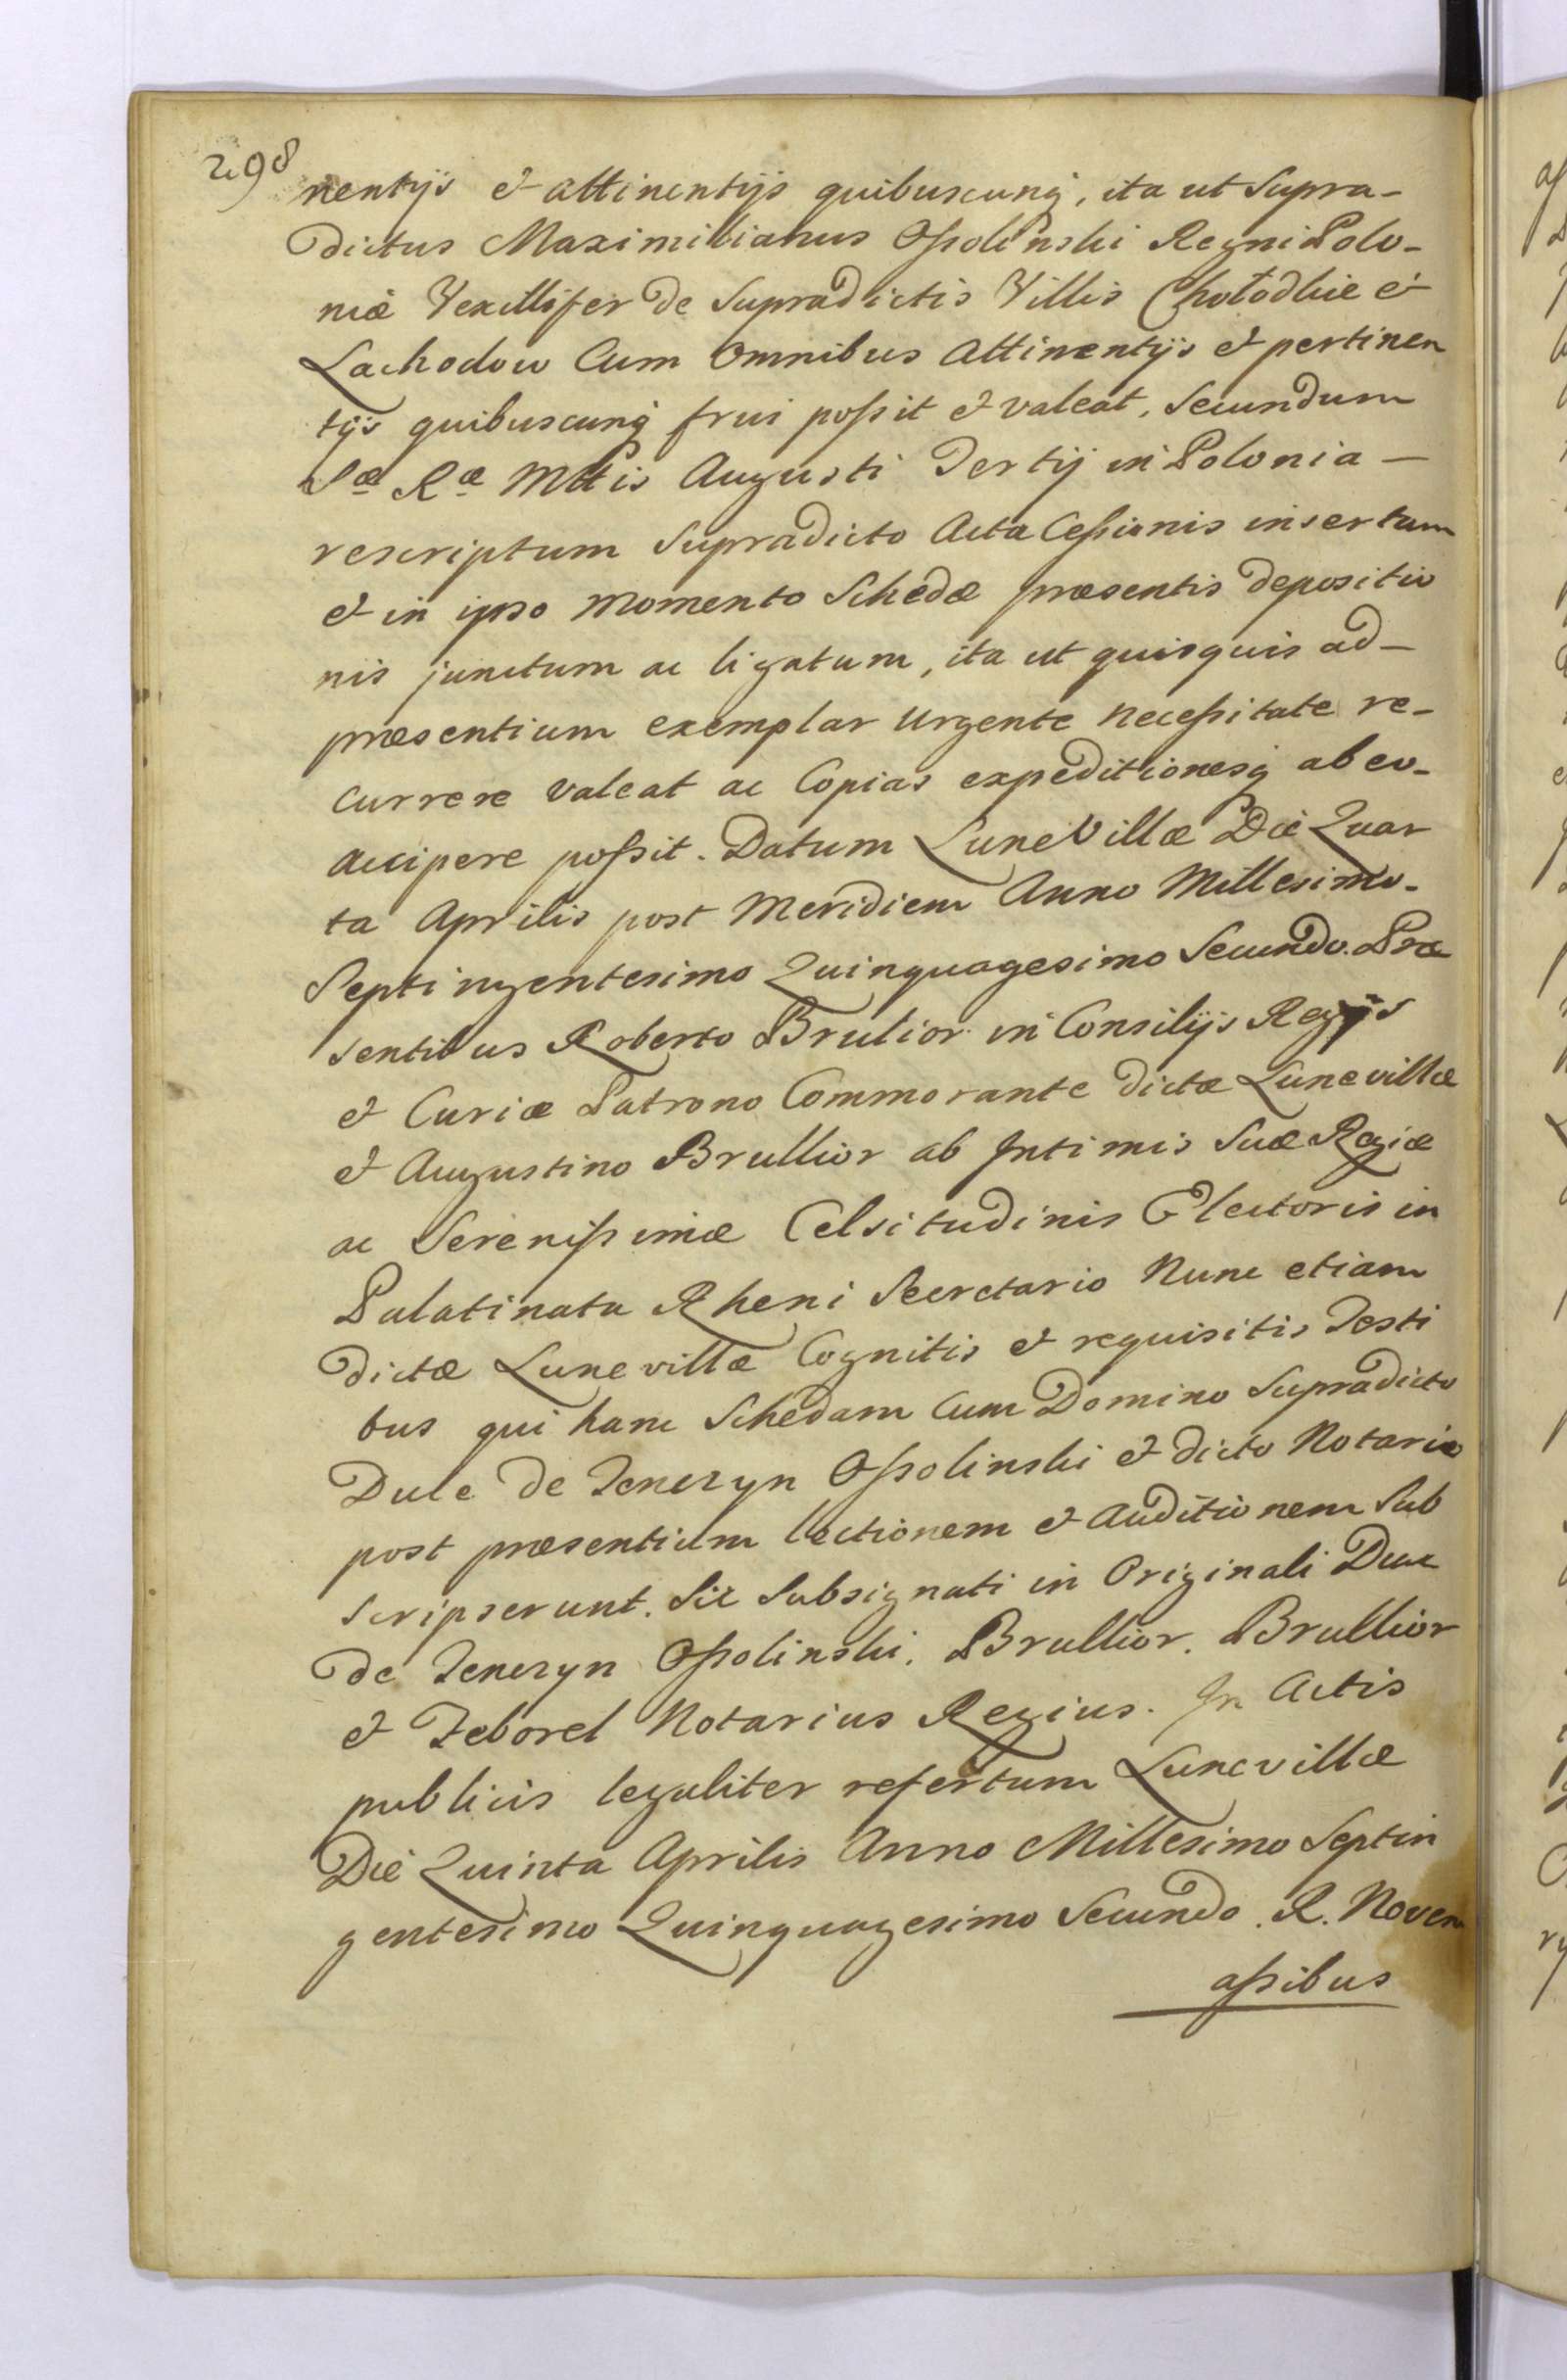 298
nentijs et attinentijs quibuscunq, ita ut Supra-
dictus Maximilianus Ossolinski Regni Polo-
niæ Vexillifer de Supradictis Villis Chołodlie et
Lachodow Cum Omnibus Attinentijs et pertinen
tijs quibuscunq frui possit et valeat, Secundum
Sæ Ræ Mttis Augusti Tertij in Polonia -
rescriptum Supradicto Acta Cessionis insertum
et in ipso Momento Schedæ præsentis depositio
nis junctum ac ligatum, ita ut quisquis ad -
præsentium exemplar Urgente Necessitate re-
currere Valeat ac Copias expeditionesq ab eo-
accipere possit. Datum LuneVillæ Die Quar
ta Aprilis post Meridiem Anno Millesimo-
Septingentesimo Quinquagesimo Secundo. Præ
sentibus Roberto Brulior in Consilijs Regijs
et Curiæ Patrono Commorante dictæ Lunevillæ
et Augustino Brullior ab Intimis Suæ Regiæ
ac Serenissimæ Celsitudinis Electoris in
Palatinatu Rheni Secretario Nunc etiam
dictæ Lunevillæ Cognitis et requisitis Testi
bus qui hanc Schedam Cum Domino Supradicto
Duce de Tenczyn Ossolinski et dicto Notario
post præsentium lectionem et Auditionem Sub
scripserunt. Sic Subsignati in Originali Dux
de Tenczyn Ossolinski. Brullior. Brullior
et Teborel Notarius Regius. In Actis
publicis legaliter refertum Lunevillæ
Die Quinta Aprilis Anno Millesimo Septin
gentesimo Quinquagesimo Secundo. R. Novem
assibus